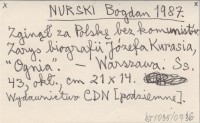 NURSKI Bogdan 1987.
Zginął za Polskę bez komunistów
Zarys biografii Józefa Kurasia,
"Ognia". — Warszawa. Ss.
43, okł., cm 21 x 14.
Wydawnictwo CDN [podziemne].